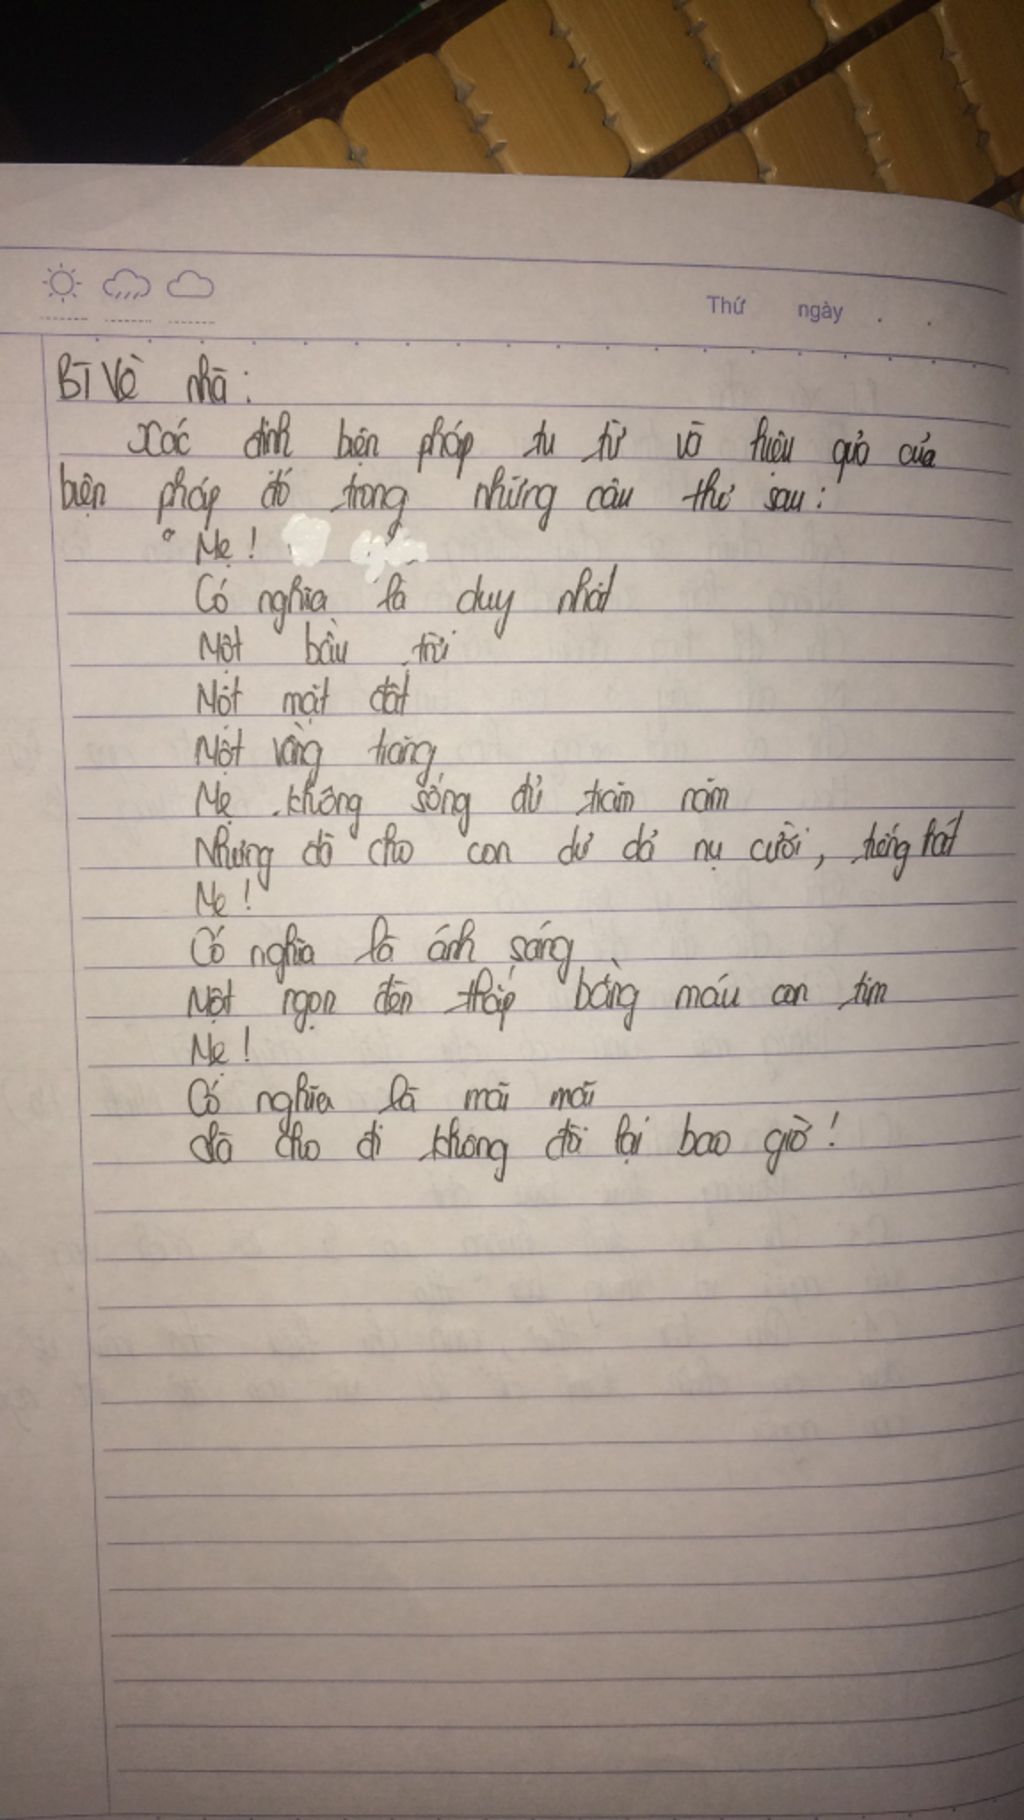 Thứ ngày . .
BT Về nhà :
Xác định biện pháp tu từ và hiệu quả của
biện pháp đó trong những câu thơ sau :
" Mẹ !
Có nghĩa là duy nhất
Một bầu trời
Một mặt đất
Một vầng trăng
Mẹ không sống đủ trăm năm
Nhưng đã cho con dư dả nụ cười, tiếng hát
Mẹ !
Có nghĩa là ánh sáng
Một ngọn đèn thắp bằng máu con tim
Mẹ !
Có nghĩa là mãi mãi
Là cho đi không đòi lại bao giờ !